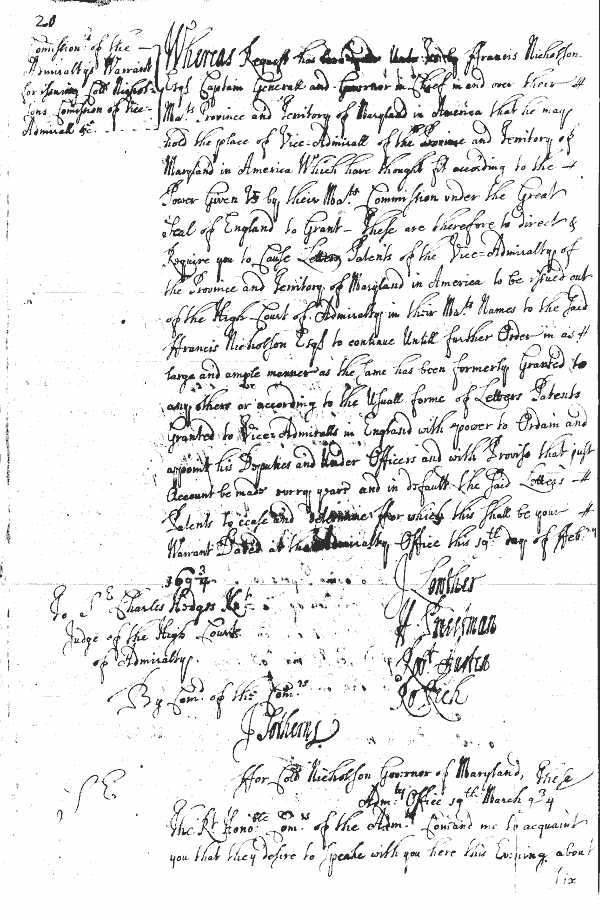 20
Comission.rs of the
Admiraltys Warrant
for Issuing Coll Nichol-
sons Comission of Vice-
Admirall &c.
Whereas Request has been made Unto Us by Ffrancis Nicholson
Esqr Captain Generall and Governor in Cheif in and over their
Mats Province and Territory of Maryland in America that he may
hold the place of Vice-Admirall of the Province and Territory of
Maryland in America Which have thought fit according to the
Power Given Us by their Mats Commission under the Great
Seal of England to Grant These are therefore to direct &
Require you to Cause Letters Patents of the Vice-Admiralty of
the Province and Territory of Maryland in America to be issued out
of the High-Court of Admiralty in their Mats Names to the Said
Ffrancis Nicholson Esqr to continue Untill further Order in as
large and ample manner as the same has been formerly Granted to
any others or according to the Usuall forme of Letters Patents
Granted to Vice-Admiralls in England with power to Ordain and
appoint his Deputies and Under Officers and with Proviso that just
Account be made every yeare and in default the Said Letters
Patents to cease and determine Ffor which this Shall be your
Warrant Dated at the Admiralty Office this 19th day of Feb.ry
169 3/4
To Sr Charles Hedges Knt
Judge of the High Court
of Admiralty
J Lowther
H Preistman
Robt Austen
Ro Rich
By Com.d of the Com.rs
J Sotherne
Ffor Coll Nicholson Governor of Maryland, These
Adm.ty Office 19th March 9 3/4
Sr.
The Rt Hono.ble Com.rs of the Adm.ty Comand me to acquaint
you that they desire to Speake with you here this Evening about
Six